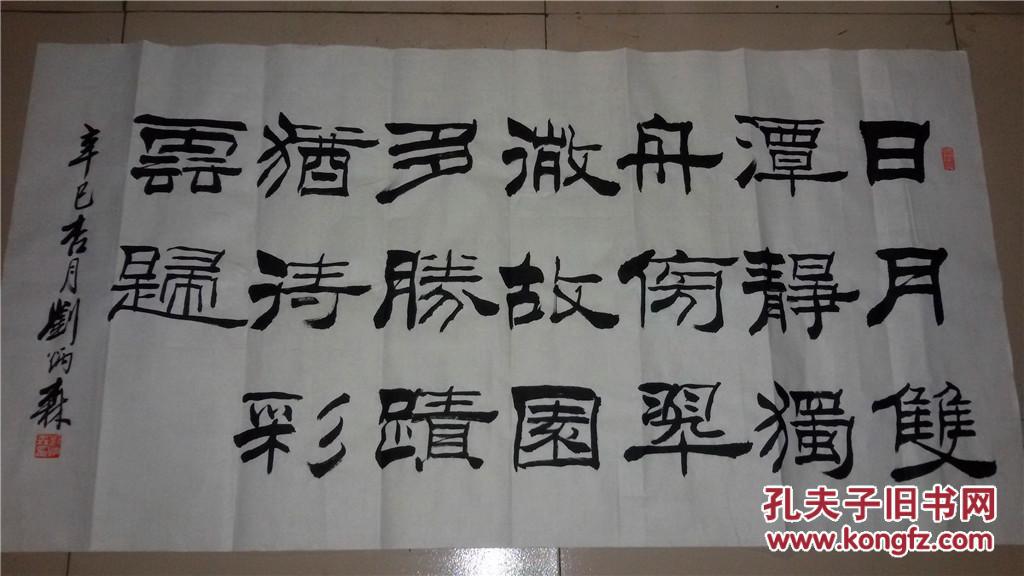 日月雙
潭靜獨
舟傍翠
微故園
多勝蹟
猶待彩
雲歸
辛巳杏月劉炳森
孔夫子旧书网
www.kongfz.com